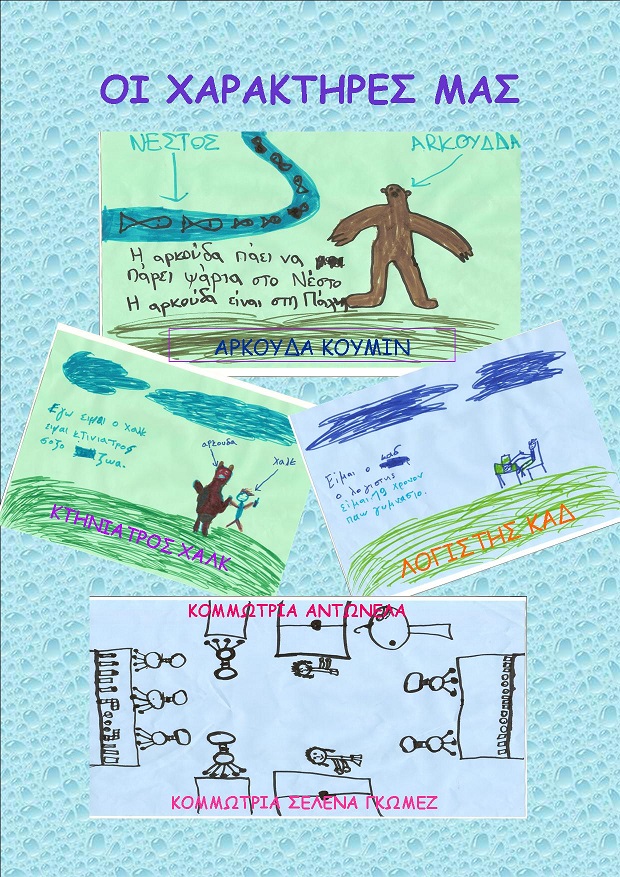 ΟΙ ΧΑΡΑΚΤΗΡΕΣ ΜΑΣ
ΝΕΣΤΟΣ
ΑRΚΟΥΔΔΑ
Η αρκούδα πάει να
πάρει ψάρια στο Νέστο
Η αρκούδα είναι στη
ΑΡΚΟΥΔΑ ΚΟΥΜΙΝ
Εγω ειμαι ο χαλκ
ειμαι κτινιατρος
σοζο ζωα.
αρκουδα
χαλκ
ΚΤΗΝΙΑΤΡΟΣ ΧΑΛΚ
Είμαι ο καδ
ο λογιστης
είμαι 19 χρονον
παω γυμνασιο.
ΛΟΓΙΣΤΗΣ ΚΑΔ
ΚΟΜΜΩΤΡΙΑ ΑΝΤΩΝΕΛΑ
ΚΟΜΜΩΤΡΙΑ ΣΕΛΕΝΑ ΓΚΩΜΕΖ